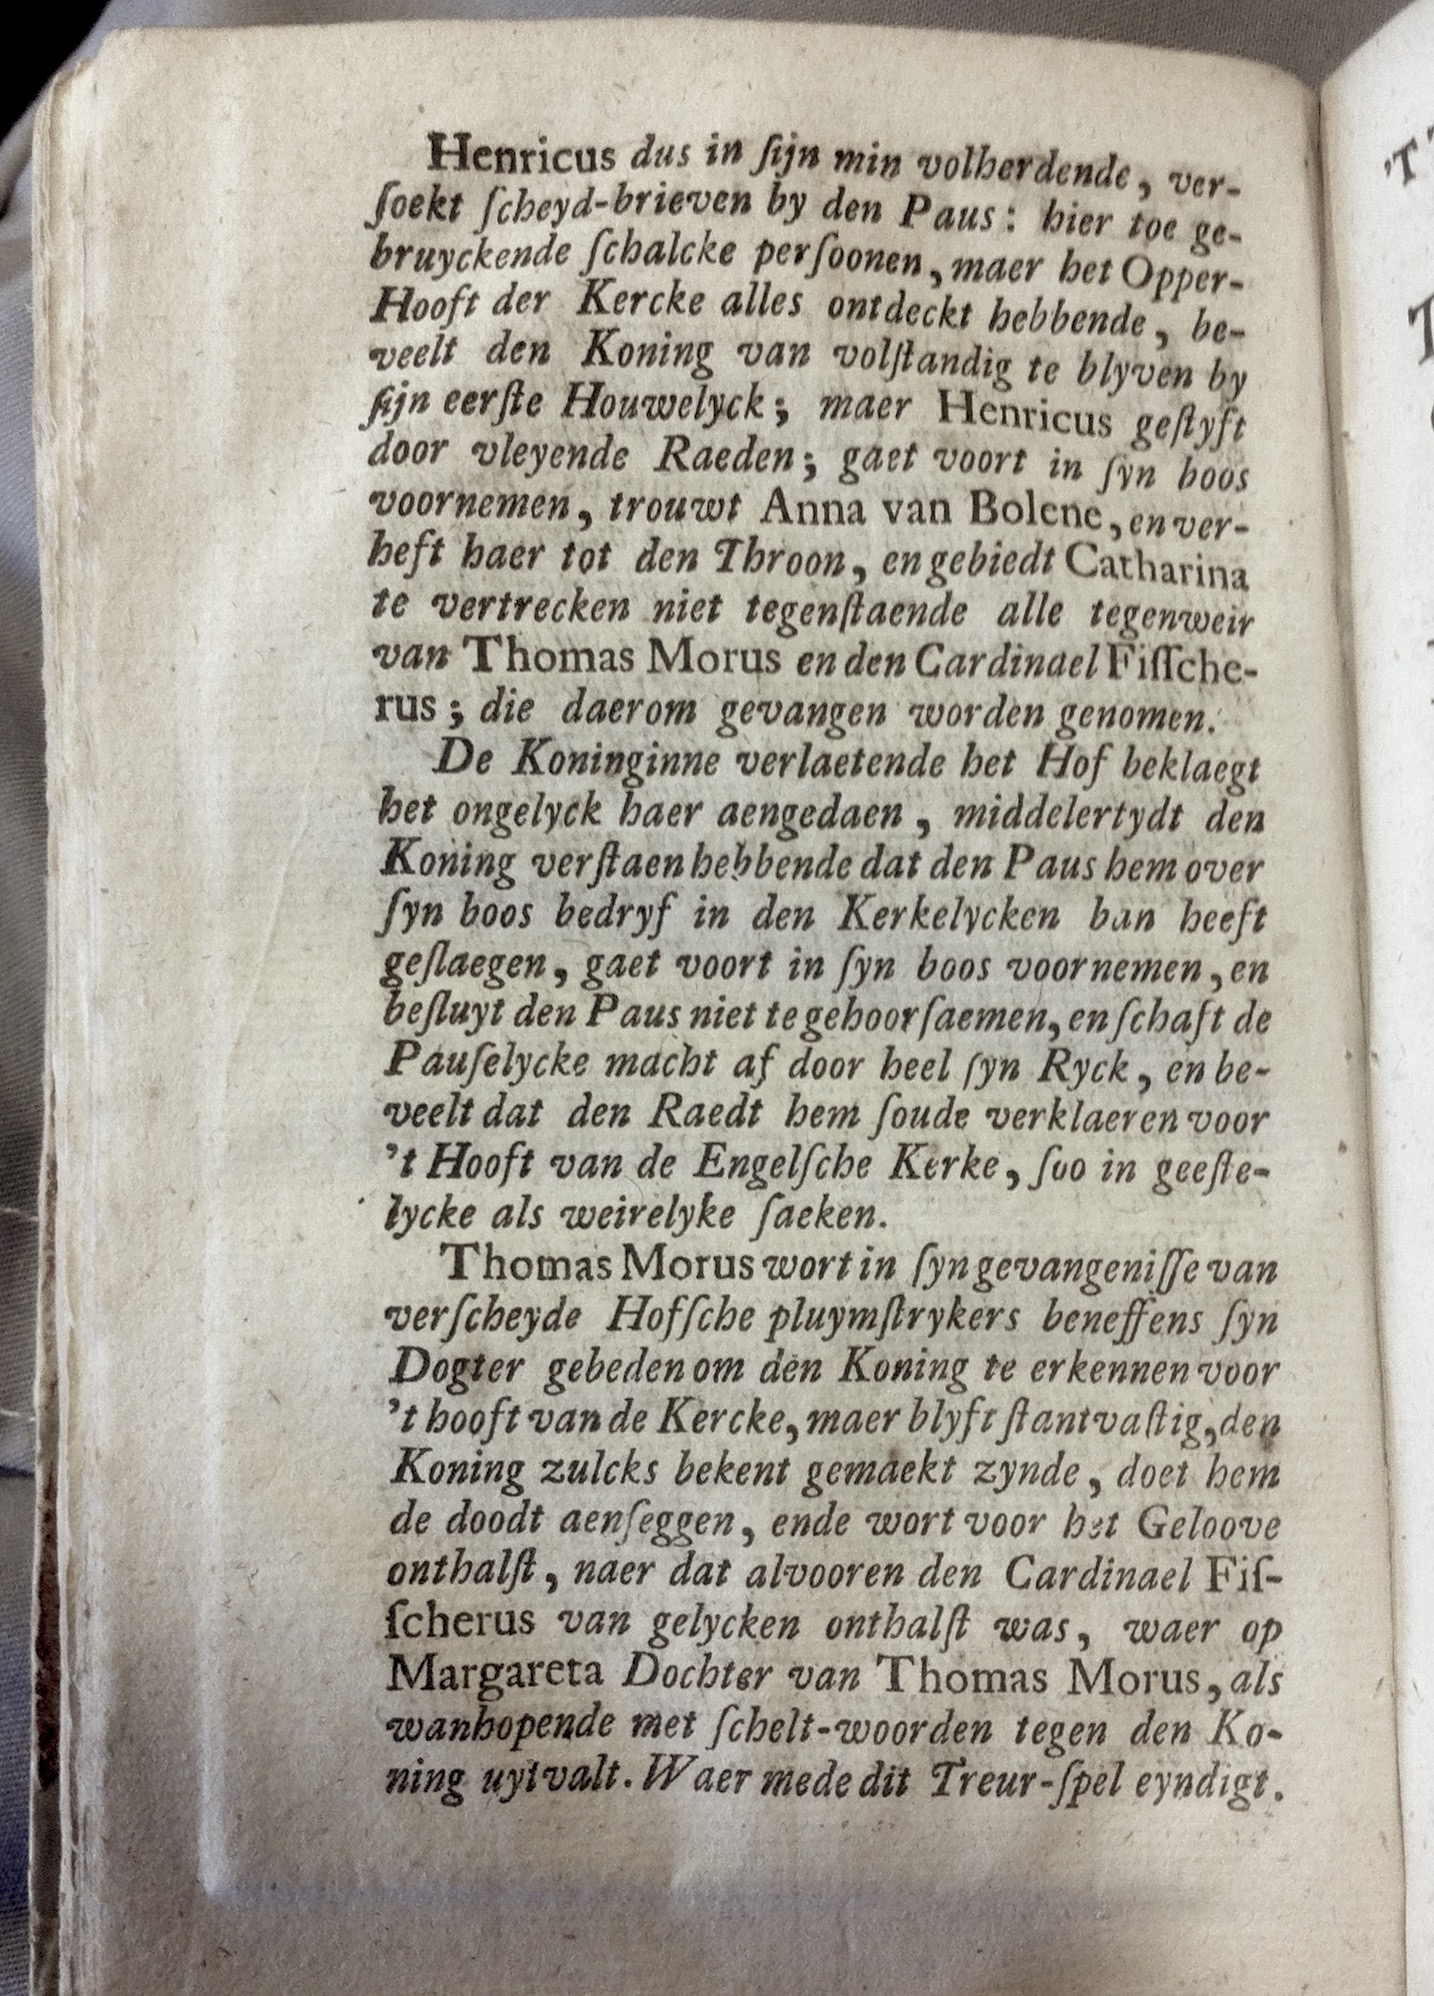 Henricus dus in ſijn min volherdende, ver-
ſoekt ſcheyd-brieven by den Paus: hier toe ge-
bruyckende ſchalcke perſoonen, maer het Opper-
Hooft der Kercke alles ontdeckt hebbende, be-
veelt den Koning van volſtandig te blyven by
ſijn eerſte Houwelyck; maer Henricus geſtyft
door vleyende Raeden; gaet voort in ſyn boos
voornemen, trouwt Anna van Bolene, en ver-
heft haer tot den Throon, en gebiedt Catharina
te vertrecken niet tegenſtaende alle tegenweir
van Thomas Morus en den Cardinael Fiſſche-
rus; die daerom gevangen worden genomen.
De Koninginne verlaetende het Hof beklaegt
het ongelyck haer aengedaen, middelertydt den
Koning verſtaen hebbende dat den Paus hem over
ſyn boos bedryf in den Kerkelycken ban heeft
geſlaegen, gaet voort in ſyn boos voornemen, en
beſluyt den Paus niet te gehoorſaemen, en ſchaft de
Pauſelycke macht af door heel ſyn Ryck, en be-
veelt dat den Raedt hem ſoude verklaeren voor
't Hooft van de Engelſche Kerke, ſoo in geeſte-
lycke als weirelyke ſaeken.
Thomas Morus wort in ſyn gevangeniſſe van
verſcheyde Hofſche pluymſtrykers beneffens ſyn
Dogter gebeden om den Koning te erkennen voor
't hooft van de Kercke, maer blyft ſtantvaſtig, den
Koning zulcks bekent gemaekt zynde, doet hem
de doodt aenſeggen, ende wort voor het Geloove
onthalſt, naer dat alvooren den Cardinael Fiſ-
ſcherus van gelycken onthalſt was, waer op
Margareta Dochter van Thomas Morus, als
wanhopende met ſchelt-woorden tegen den Ko-
ning uytvalt. Waer mede dit Treur-ſpel eyndigt.